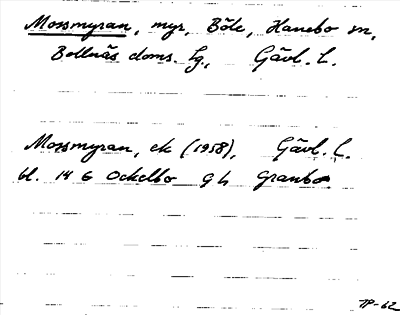 Mossmyran, myr, Böle, Hanebo sn,
Bollnäs doms. lg, Gävl. L.
Mossmyran, ek (1958), Gävl. L.
bl. 14 G Ockelbo 9 h Granbo
TP-62